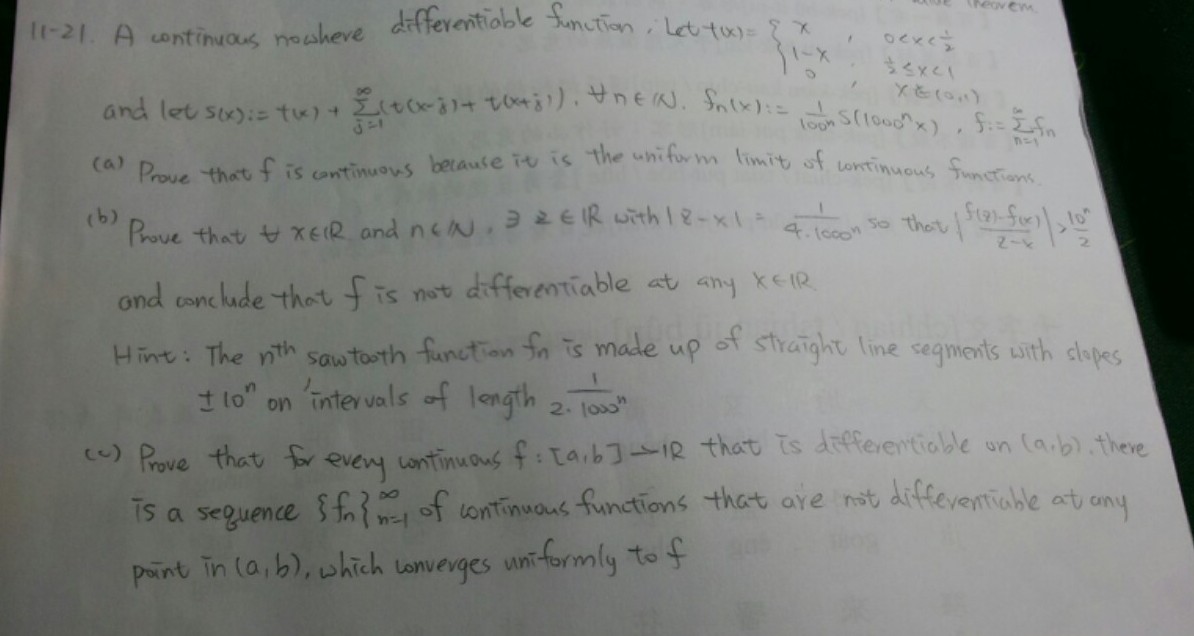 Theorem
11-21. A continuous nowhere differentiable function. Let t(x)= { x , 0<x<1/2
1-x , 1/2≤x<1
0 , x∉(0,1)
and let s(x):= t(x) + ∑_{j=1}^{∞}(t(x-j)+t(x+j)). ∀n∈ℕ. fn(x):= 1/100^n S(1000^n x) , f:= ∑_{n=1}^{∞} fn
(a) Prove that f is continuous because it is the uniform limit of continuous functions.
(b) Prove that ∀ x∈ℝ and n∈ℕ, ∃ z∈ℝ with |z-x| = 1/(4·1000^n) so that |(f(z)-f(x))/(z-x)| > 10^n/2
and conclude that f is not differentiable at any x∈ℝ
Hint: The nth sawtooth function fn is made up of straight line segments with slopes
±10^n on intervals of length 1/(2·1000^n)
(c) Prove that for every continuous f:[a,b]→ℝ that is differentiable on (a,b), there
is a sequence {fn}_{n=1}^{∞} of continuous functions that are not differentiable at any
point in (a,b), which converges uniformly to f